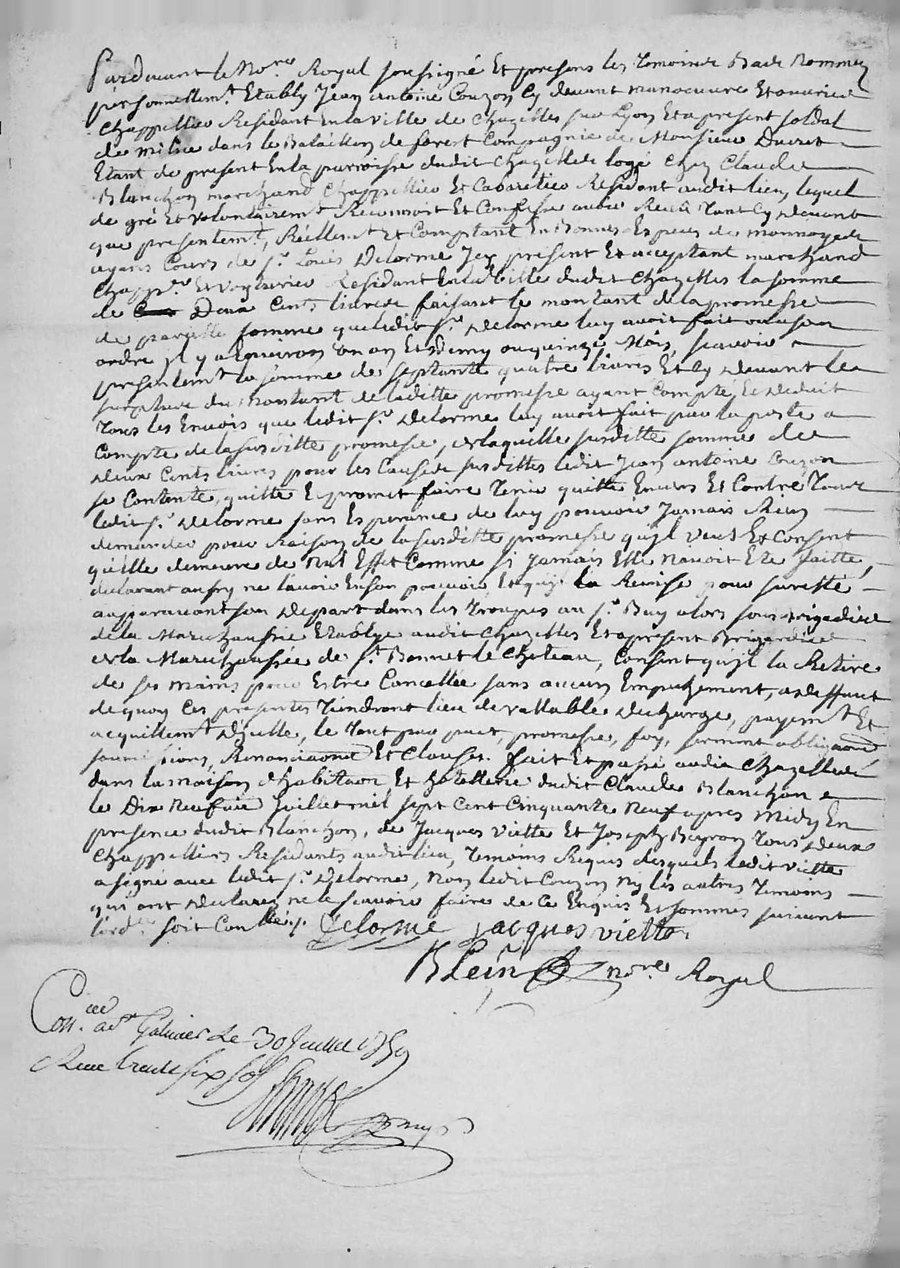 Pardevant le No.re Royal soussigné Et presens les Temoins Bas Nommez
personnellem.t Etably Jean Antoine Couzon Cy devant manoeuvre Et ouvrier
Chappellier Residant En la ville de Chazelles sur Lyon Et a present soldat
de milice dans le Bataillon de forest Compagnie de Monsieur
Etant de present En la parroisse dudit Chazelles logé Chez Claude
Blanchon marchand Chappellier Et Cabaretier Residant audit lieu, lequel
de gré Et volontairem.t Reconnoit Et Confesse avoir Reçû Tant Cy devant
que presentem.t, Réellem.t Et Comptant En Bonnes Especes de monnoye de
ayant Cours de s.r Louis Delorme Icy present Et acceptant marchand
Chapp.er Et Voyturier Residant En la ville dudit Chazelles la somme
de Deux Cents livres faisant le montant de la promesse
de pareille somme que ledit s.r Delorme luy avoit fait ou a son
ordre il y a Environ un an Et demy ou quinze Mois, scavoir
presentem.t la somme de septante quatre livres Et Cy devant le
surplus du montant de laditte promesse ayant Compté Et deduit
Tous les Envois que ledit s.r Delorme luy avoit fait par la poste a
Compte de la susditte promesse, de laquelle susditte somme de
Deux Cents livres pour les Causes susdittes ledit Jean antoine Couzon
se Contente, quitte Et promet faire Tenir quitte Envers Et Contre Tous
ledit s.r Delorme sans Esperance de luy pouvoir Jamais Rien
demander pour Raison de la susditte promesse qu'jl veut Et Consent
qu'elle demeure de Nul Effet Comme si Jamais Elle N'avoit Eté faitte,
declarant aussy ne l'avoir En son pouvoir, Et qu'jl la Remise pour sureté
auparavant son Depart dans les Troupes au s.r Buy alors sous Brigadier
de la Marechaussée Etablye audit Chazelles Et a present Brigadier
de la Marechaussée de s.t Bonnet le Chateau, Consent qu'jl la Retire
de ses mains pour Estre Cancellée sans aucun Empechement, a deffaut
de quoy Ces presentes Tiendront lieu de vallable Decharge, payem.t Et
acquittem.t D'jcelle, le Tout par pact, promesse, foy, serment obligaōns
soumissions, Renonciaōns Et Clauses. fait Et passé audit Chazelles
dans la maison d'habitaōn Et hotellerie dudit Claude Blanchon
le Dix Neufvie Juillet mil sept Cent Cinquante Neuf apres Midy En
presence dudit Blanchon, de Jacques Viette Et Joseph Beyron Tous Deux
Chappelliers Residants audit lieu, Temoins Requis desquels ledit viette
a signé avec ledit s.r Delorme, Non ledit Couzon Ny les autres Temoins
qui ont Declaré ne le scavoir faire de Ce Enquis Et sommés suivant
l'ord.ce soit Con.llé
Delorme Jacques viette
Blein no.re Royal
Con.lé a S.t Galmier Le 30 Juillet 1759
Reçu trente six sols